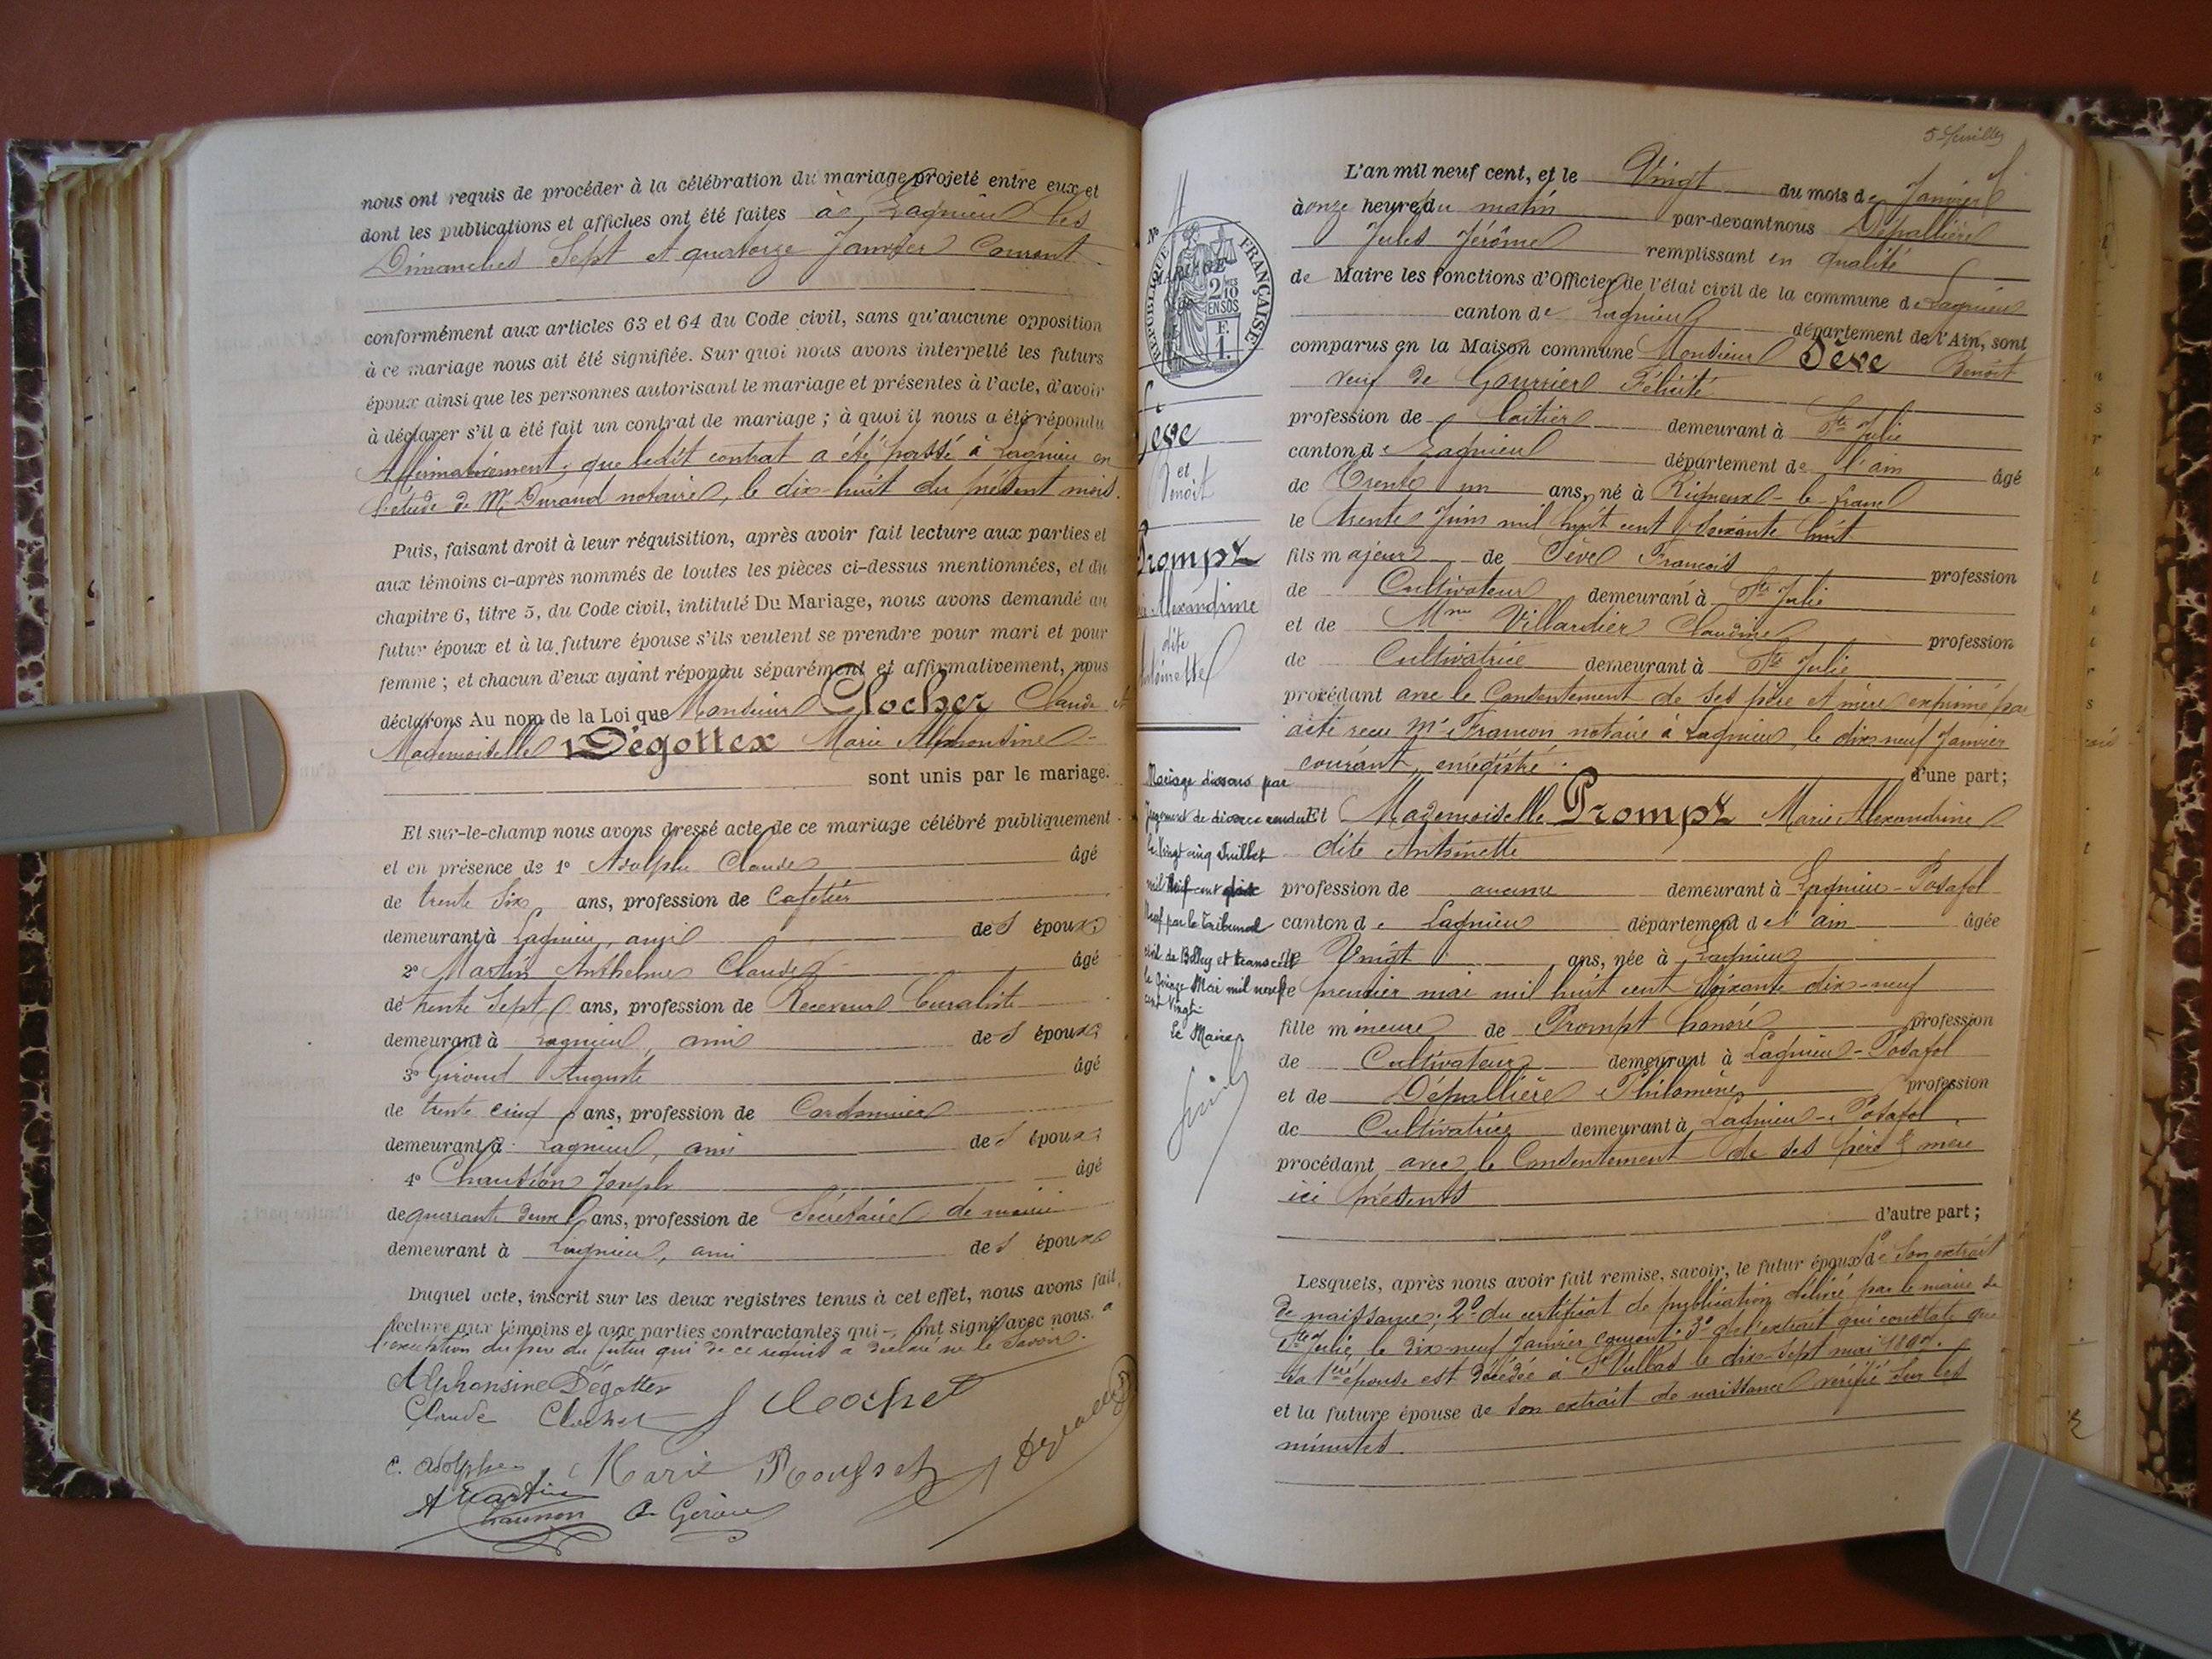 nous ont requis de procéder à la célébration du mariage projeté entre eux et
dont les publications et affiches ont été faites à Lagnieu les
Dimanches Sept et quatorze Janvier Courant.
conformément aux articles 63 et 64 du Code civil, sans qu'aucune opposition
à ce mariage nous ait été signifiée. Sur quoi nous avons interpellé les futurs
époux ainsi que les personnes autorisant le mariage et présentes à l'acte, d'avoir
à déclarer s'il a été fait un contrat de mariage ; à quoi il nous a été répondu
Affirmativement, que ledit contrat a été passé à Lagnieu en
l'étude de Me Durand notaire, le dix-huit du présent mois.
Puis, faisant droit à leur réquisition, après avoir fait lecture aux parties et
aux témoins ci-après nommés de toutes les pièces ci-dessus mentionnées, et du
chapitre 6, titre 5, du Code civil, intitulé Du Mariage, nous avons demandé au
futur époux et à la future épouse s'ils veulent se prendre pour mari et pour
femme ; et chacun d'eux ayant répondu séparément et affirmativement, nous
déclarons Au nom de la Loi que Monsieur Clocher Claude et
Mademoiselle Dégottex Marie Alphonsine
sont unis par le mariage.
Et sur-le-champ nous avons dressé acte de ce mariage célébré publiquement
et en présence de 1° Adolphe Claude âgé
de trente Six ans, profession de Cafetier
demeurant à Lagnieu, ami des époux
2° Martin Anthelme Claude âgé
de trente Sept ans, profession de Receveur buraliste
demeurant à Lagnieu, ami des époux
3° Giroud Auguste âgé
de trente cinq ans, profession de Cordonnier
demeurant à Lagnieu, ami des époux
4° Joseph âgé
de quarante deux ans, profession de Secrétaire de mairie
demeurant à Lagnieu, ami des époux
Duquel acte, inscrit sur les deux registres tenus à cet effet, nous avons fait
lecture aux témoins et aux parties contractantes qui ont signé avec nous. à
l'exception du père du futur qui de ce requis a déclaré ne le Savoir.
Alphonsine Dégottex
Claude Clocher J Clochet
C. Adolphe Marie
A Martin
5e feuillet
L'an mil neuf cent, et le Vingt du mois de Janvier
à onze heure du matin par-devant nous Dépallière
Jules Jérôme remplissant en qualité
de Maire les fonctions d'Officier de l'état civil de la commune de Lagnieu
canton de Lagnieu département de l'Ain, sont
comparus en la Maison commune Monsieur Sève Benoît
veuf de Félicité
profession de laitier demeurant à Ste Julie
canton de Lagnieu département de l'ain âgé
de Trente un ans, né à Rigneux-le-franc
le trente Juin mil huit cent soixante huit
fils majeur de Sève François profession
de Cultivateur demeurant à Ste Julie
et de Mme Villardier Claudine profession
de Cultivatrice demeurant à Ste Julie
procédant avec le Consentement de ses père et mère exprimé par
acte reçu Me Francon notaire à Lagnieu, le dix-neuf Janvier
courant, enrégistré. d'une part;
Et Mademoiselle Prompt Marie Alexandrine
dite Antoinette
profession de aucune demeurant à Lagnieu-Posafol
canton de Lagnieu département de l'ain âgée
de Vingt ans, née à Lagnieu
le premier mai mil huit cent soixante dix-neuf
fille mineure de Prompt honoré profession
de Cultivateur demeurant à Lagnieu-Posafol
et de Dépallière Philomène profession
de Cultivatrice demeurant à Lagnieu-Posafol
procédant avec le Consentement de ses père & mère
ici présents
d'autre part ;
Lesquels, après nous avoir fait remise, savoir, le futur époux 1° de Son extrait
de naissance; 2° du certificat de publication délivré par le maire de
Ste Julie, le dix-neuf Janvier courant. 3° de l'extrait qui constate que
sa 1ère épouse est décédée à St Vulbas le dix-sept mai 1897.
et la future épouse de Son extrait de naissance vérifié Sur les
minutes.
No
MARIAGE
RÉPUBLIQUE FRANÇAISE
2 10
EN SUS
F.
1.
Sève
et
Benoît
Prompt
Alexandrine
dite
Mariage dissous par
Jugement de divorce rendu
le Vingt cinq Juillet
mil neuf cent dix
Neuf par le Tribunal
civil de Belley et transcrit
le Quinze Mai mil neuf
cent Vingt
Le Maire